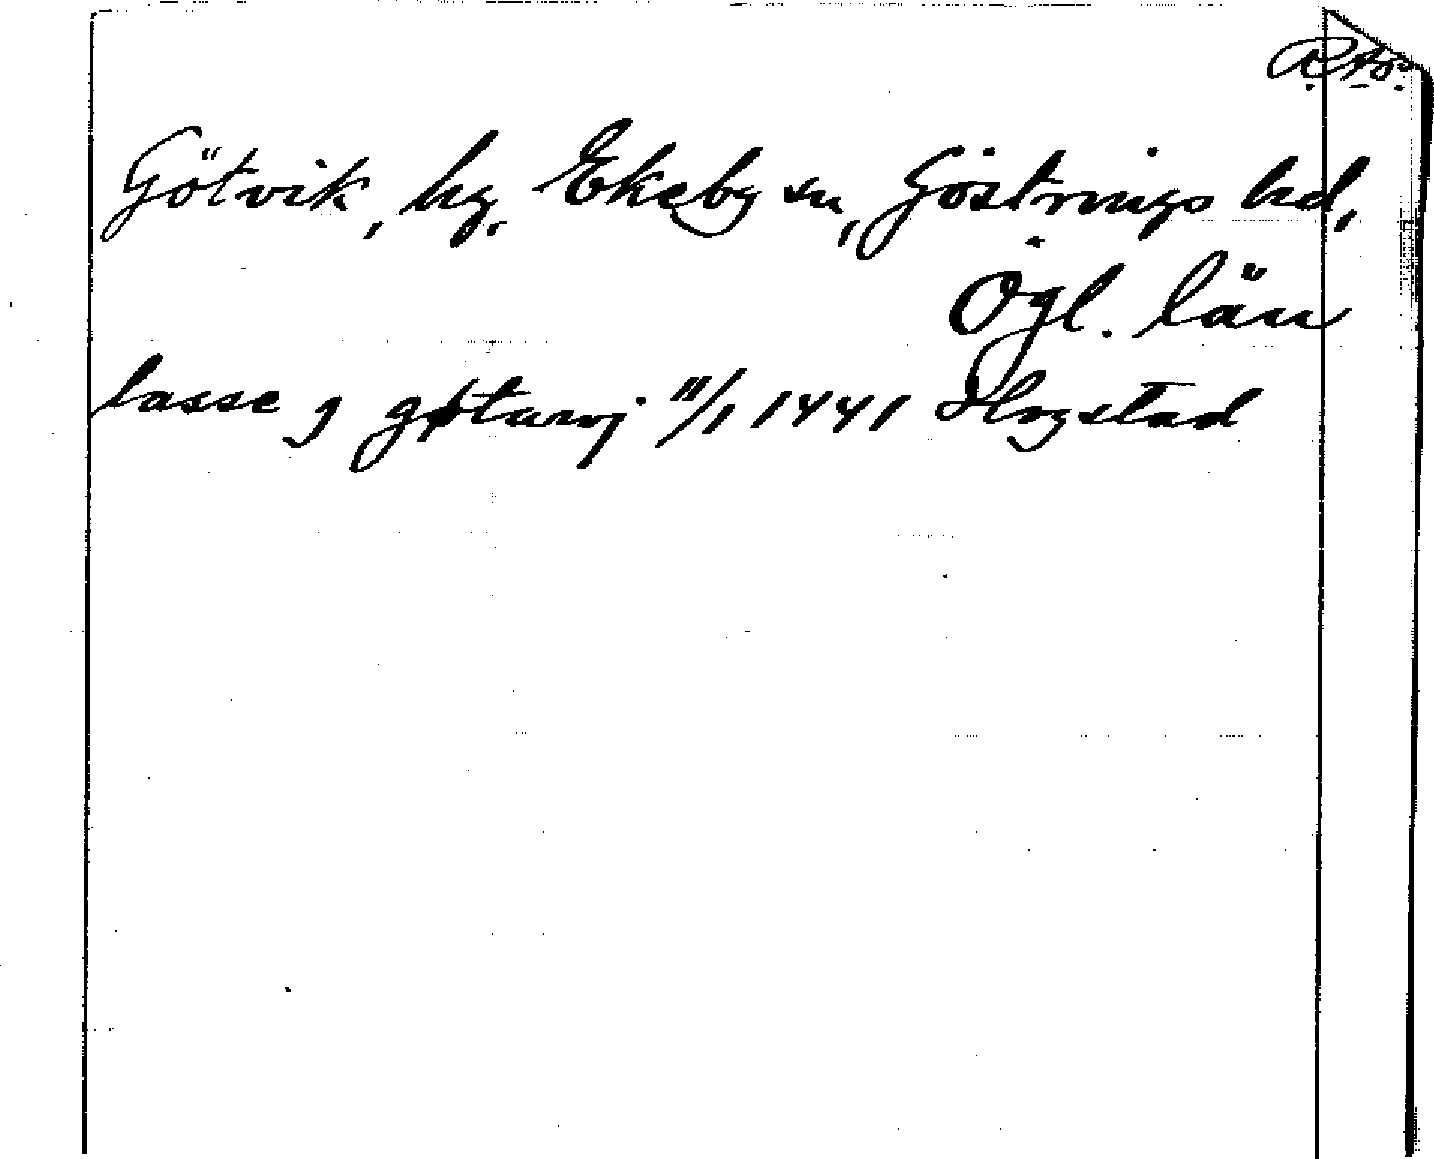 Götvik, hg, Ekeby sn, Göstrings hd,
Ögl. län
lasse j gøtuvj 11/1 1441 Hogstad